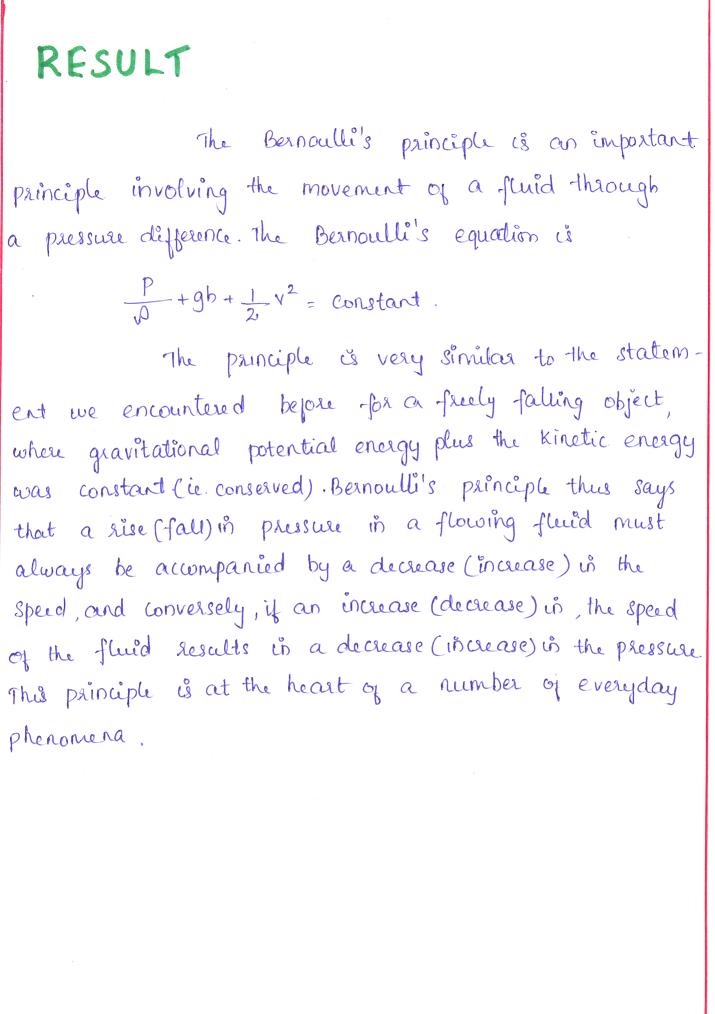 RESULT
The Bernoulli's principle is an important
principle involving the movement of a fluid through
a pressure difference. The Bernoulli's equation is
P/ρ + gh + 1/2 v² = constant.
The principle is very similar to the statem-
ent we encountered before for a freely falling object,
where gravitational potential energy plus the kinetic energy
was constant (ie. conserved). Bernoulli's principle thus says
that a rise (fall) in pressure in a flowing fluid must
always be accompanied by a decrease (increase) in the
speed, and conversely, if an increase (decrease) in, the speed
of the fluid results in a decrease (increase) in the pressure.
This principle is at the heart of a number of everyday
phenomena.